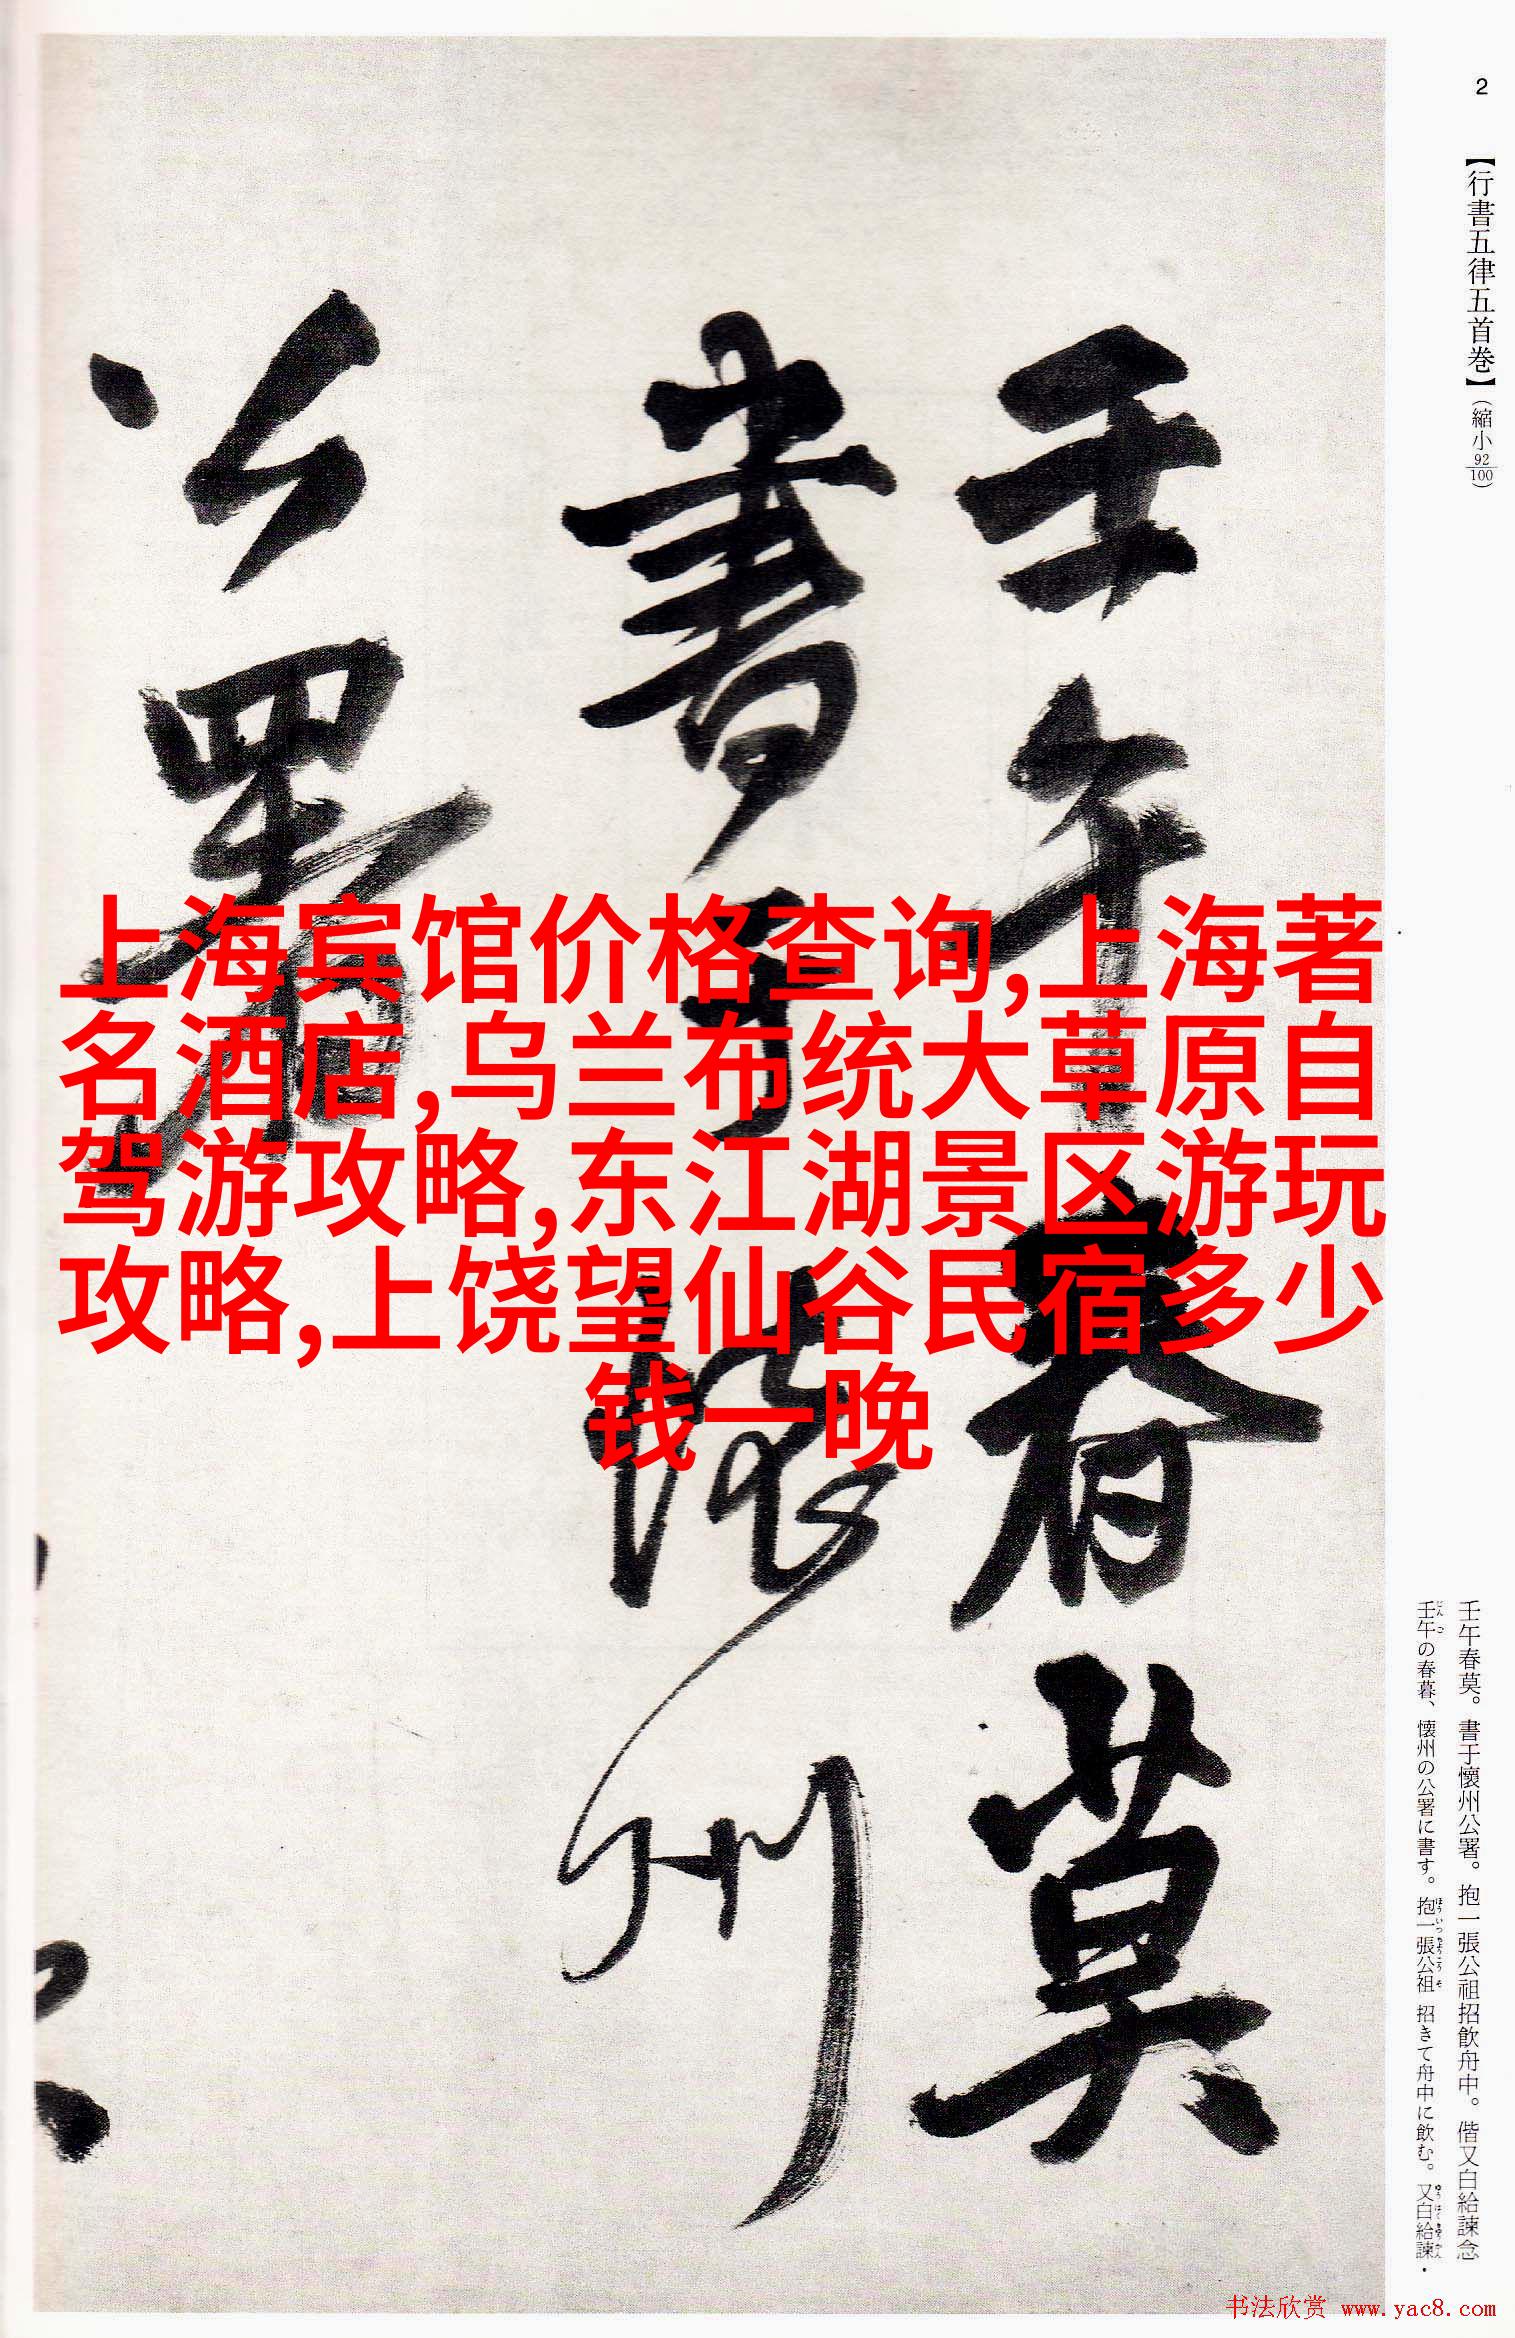 2
【行書五律五首巻】(縮小92/100)
壬午春莫
書于懷州
公署
上海宾馆价格查询,上海著
名酒店,乌兰布统大草原自
驾游攻略,东江湖景区游玩
攻略,上饶望仙谷民宿多少
钱一晚
壬午春莫。書于懷州公署。抱一張公祖招飲舟中。偕又白給諫念
壬午の春暮、懐州の公署に書す。抱一張公祖 招きて舟中に飲む。又白給諫・
书法欣赏 www.yac8.com